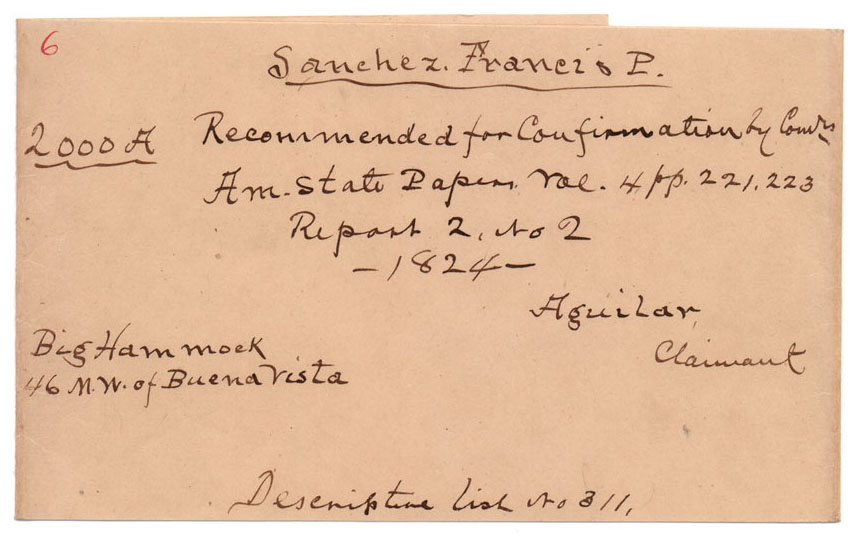 6
Sanchez. Francis P.
2000 A Recommended for Confirmation by Comrs
Am. State Papers. Vol. 4 pp. 221, 223
Report 2, No 2
— 1824 —
Aguilar,
Claimant
Big Hammock
46 M. W. of Buena Vista
Descriptive List No 311,